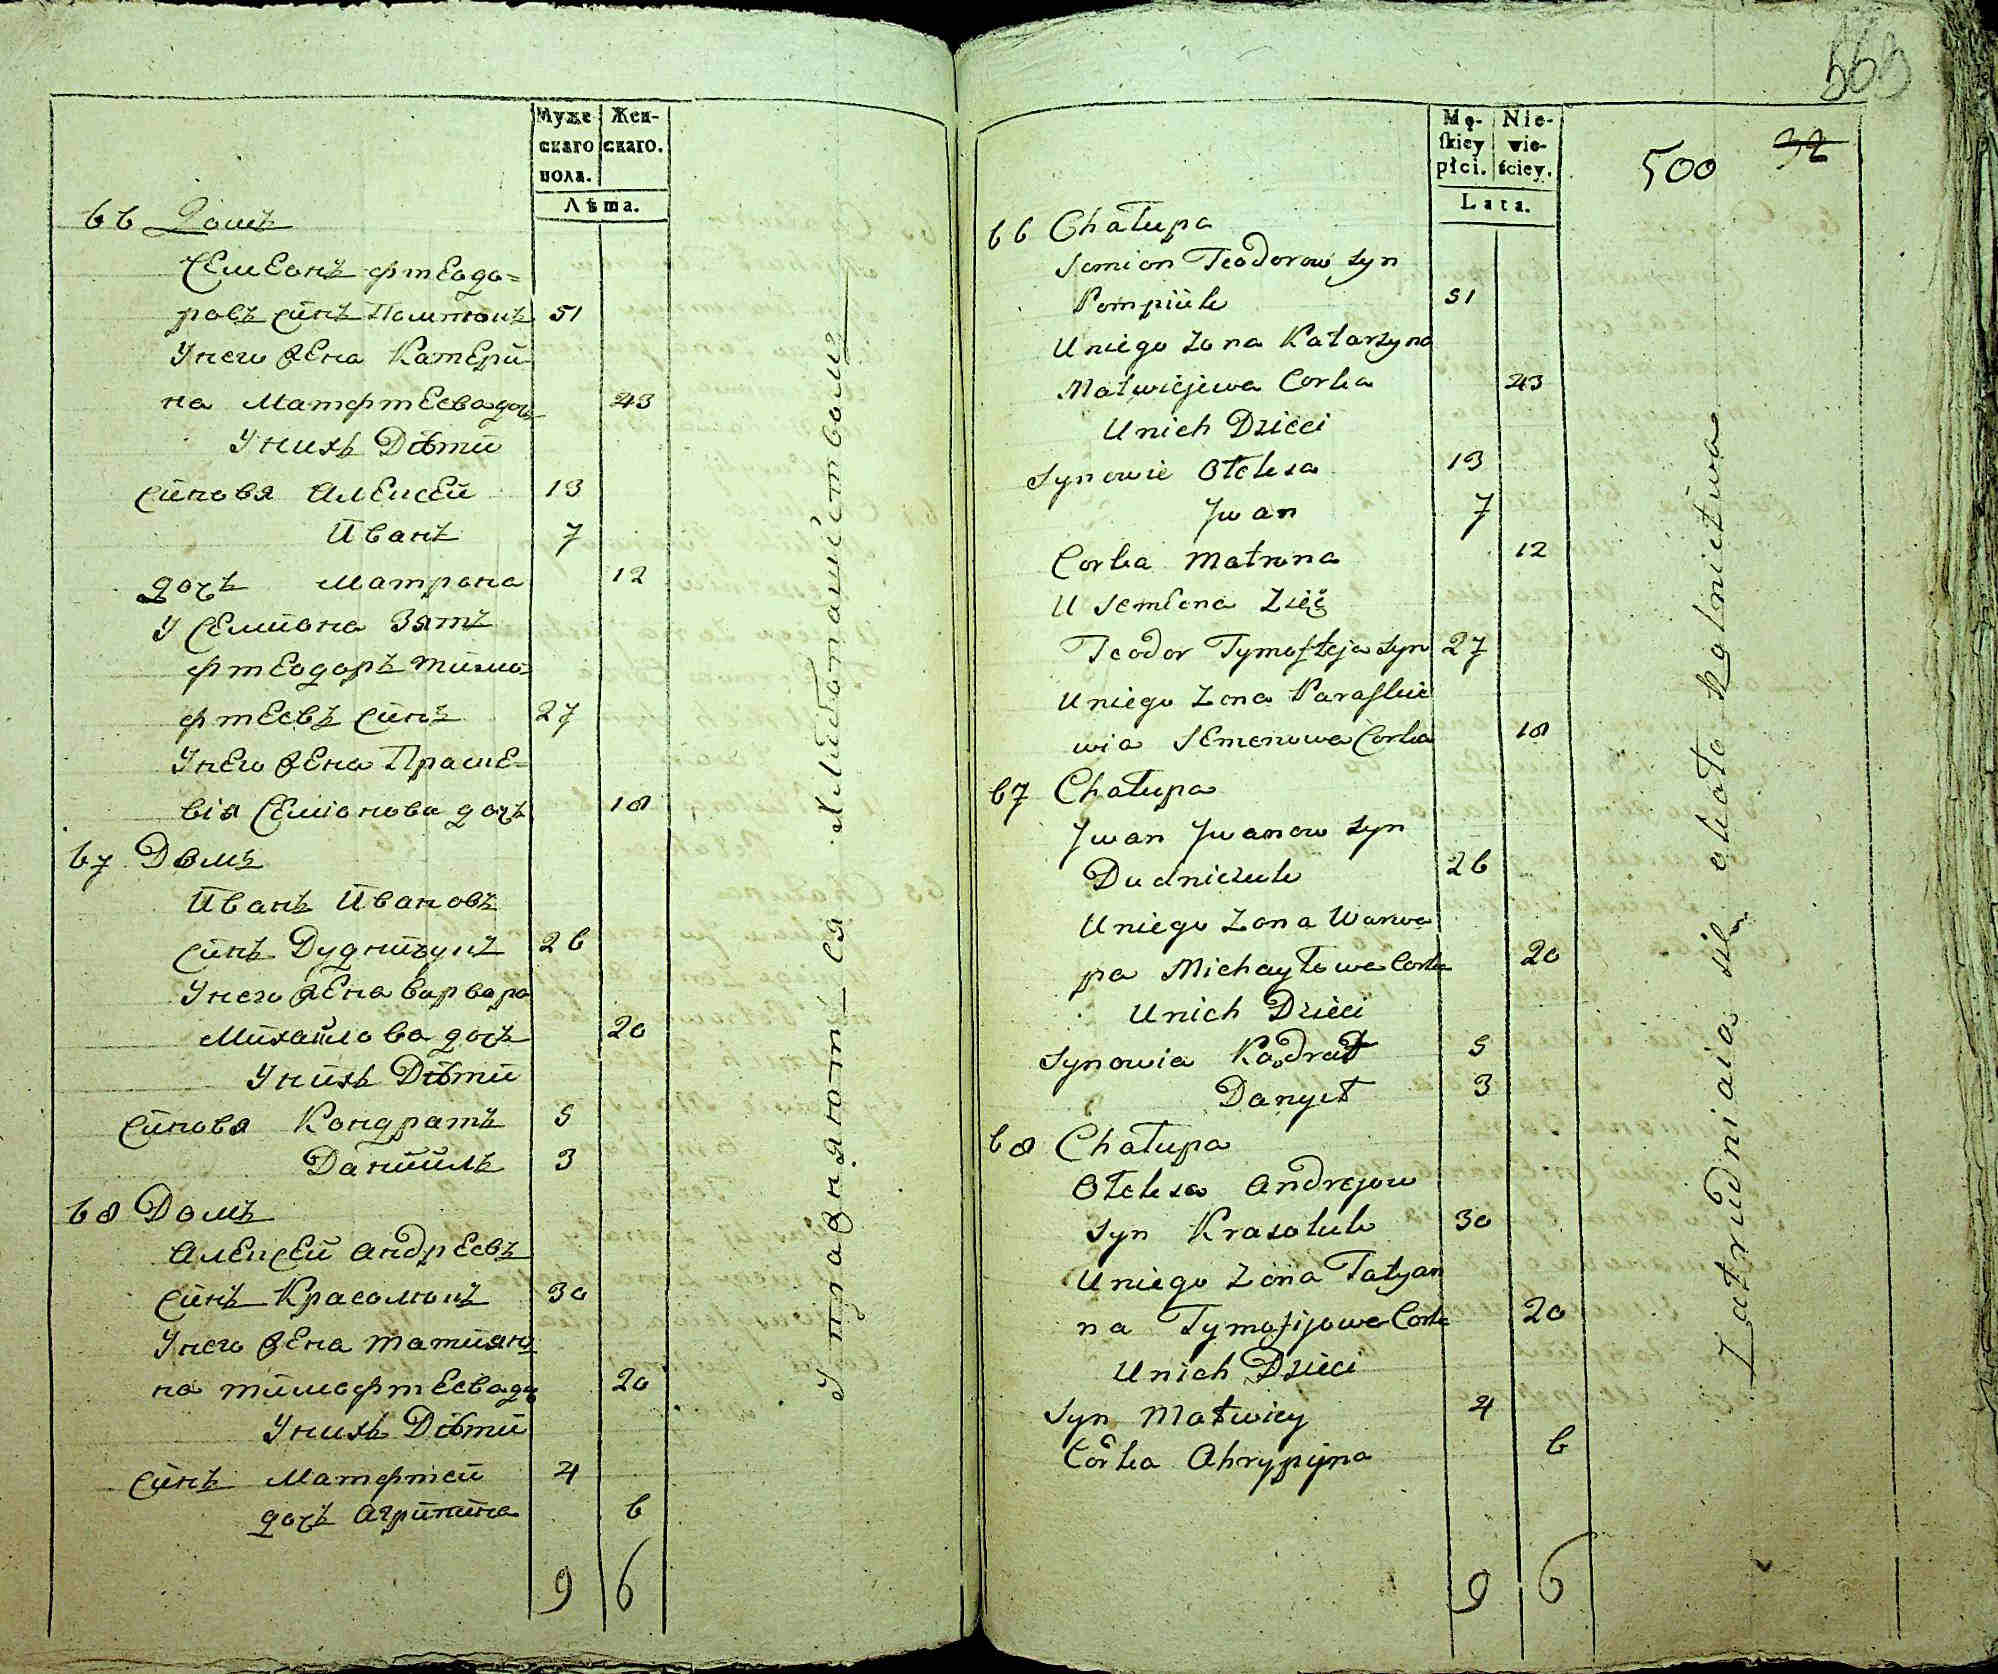 Муже
скаго
пола.
Жен-
скаго.
Лѣта.
66 Домъ
Семеонъ фтеодо=
ровъ синъ Помпюкъ 51
Унего жена Катери-
на Матфтеева дочъ 43
Унихъ Дѣти
Синовя Алексей 13
Иванъ 7
дочъ Матрона 12
У Семиона Зятъ
фтеодоръ тимо-
фтеевъ синъ 27
Унего жена Праске-
вія Семіонова дочъ 18
67 Домъ
Иванъ Ивановъ
синъ Дудничукъ 26
Унего жена варвара
Михайлова дочъ 20
Унихъ Дѣти
Синовя Кондратъ 5
Данйилъ 3
68 Домъ
Алексей андреевъ
синъ Красолюкъ 30
Унего жена татиян-
на тимофтеева до 20
Унихъ Дѣти
Синъ Матфтей 4
дочъ Агрипина 6
9 6
Упражняют_ся хлибопашествомъ
Mę-
skiey
płci.
Nie-
wie-
ściey.
Lata.
500 32
66 Chałupa
Semion Teodorow syn
Pompiuk 51
Uniego Zona Katarzyna
Matwiejewa Corka 43
Unich Dzieci
Synowie Ołeksa 13
Jwan 7
Corka Matrona 12
U Semena Zięć
Teodor Tymofteja syn 27
Uniego Zona Paraskie
wia Semenowa Corka 18
67 Chałupa
Jwan Jwanow syn
Dudniczuk 26
Uniego Zona Warwa
ra Michayłowa Corka 20
Unich Dzieci
Synowia Kądrat 5
Danyeł 3
68 Chałupa
Ołeksa Andrejow
syn Krasoluk 30
Uniego Zona Tatyan
na Tymofijowa Corka 20
Unich Dzieci
Syn Matwiey 4
Córka Ahrypyna 6
9 6
Zatrudniaia sie około Rolnictwa